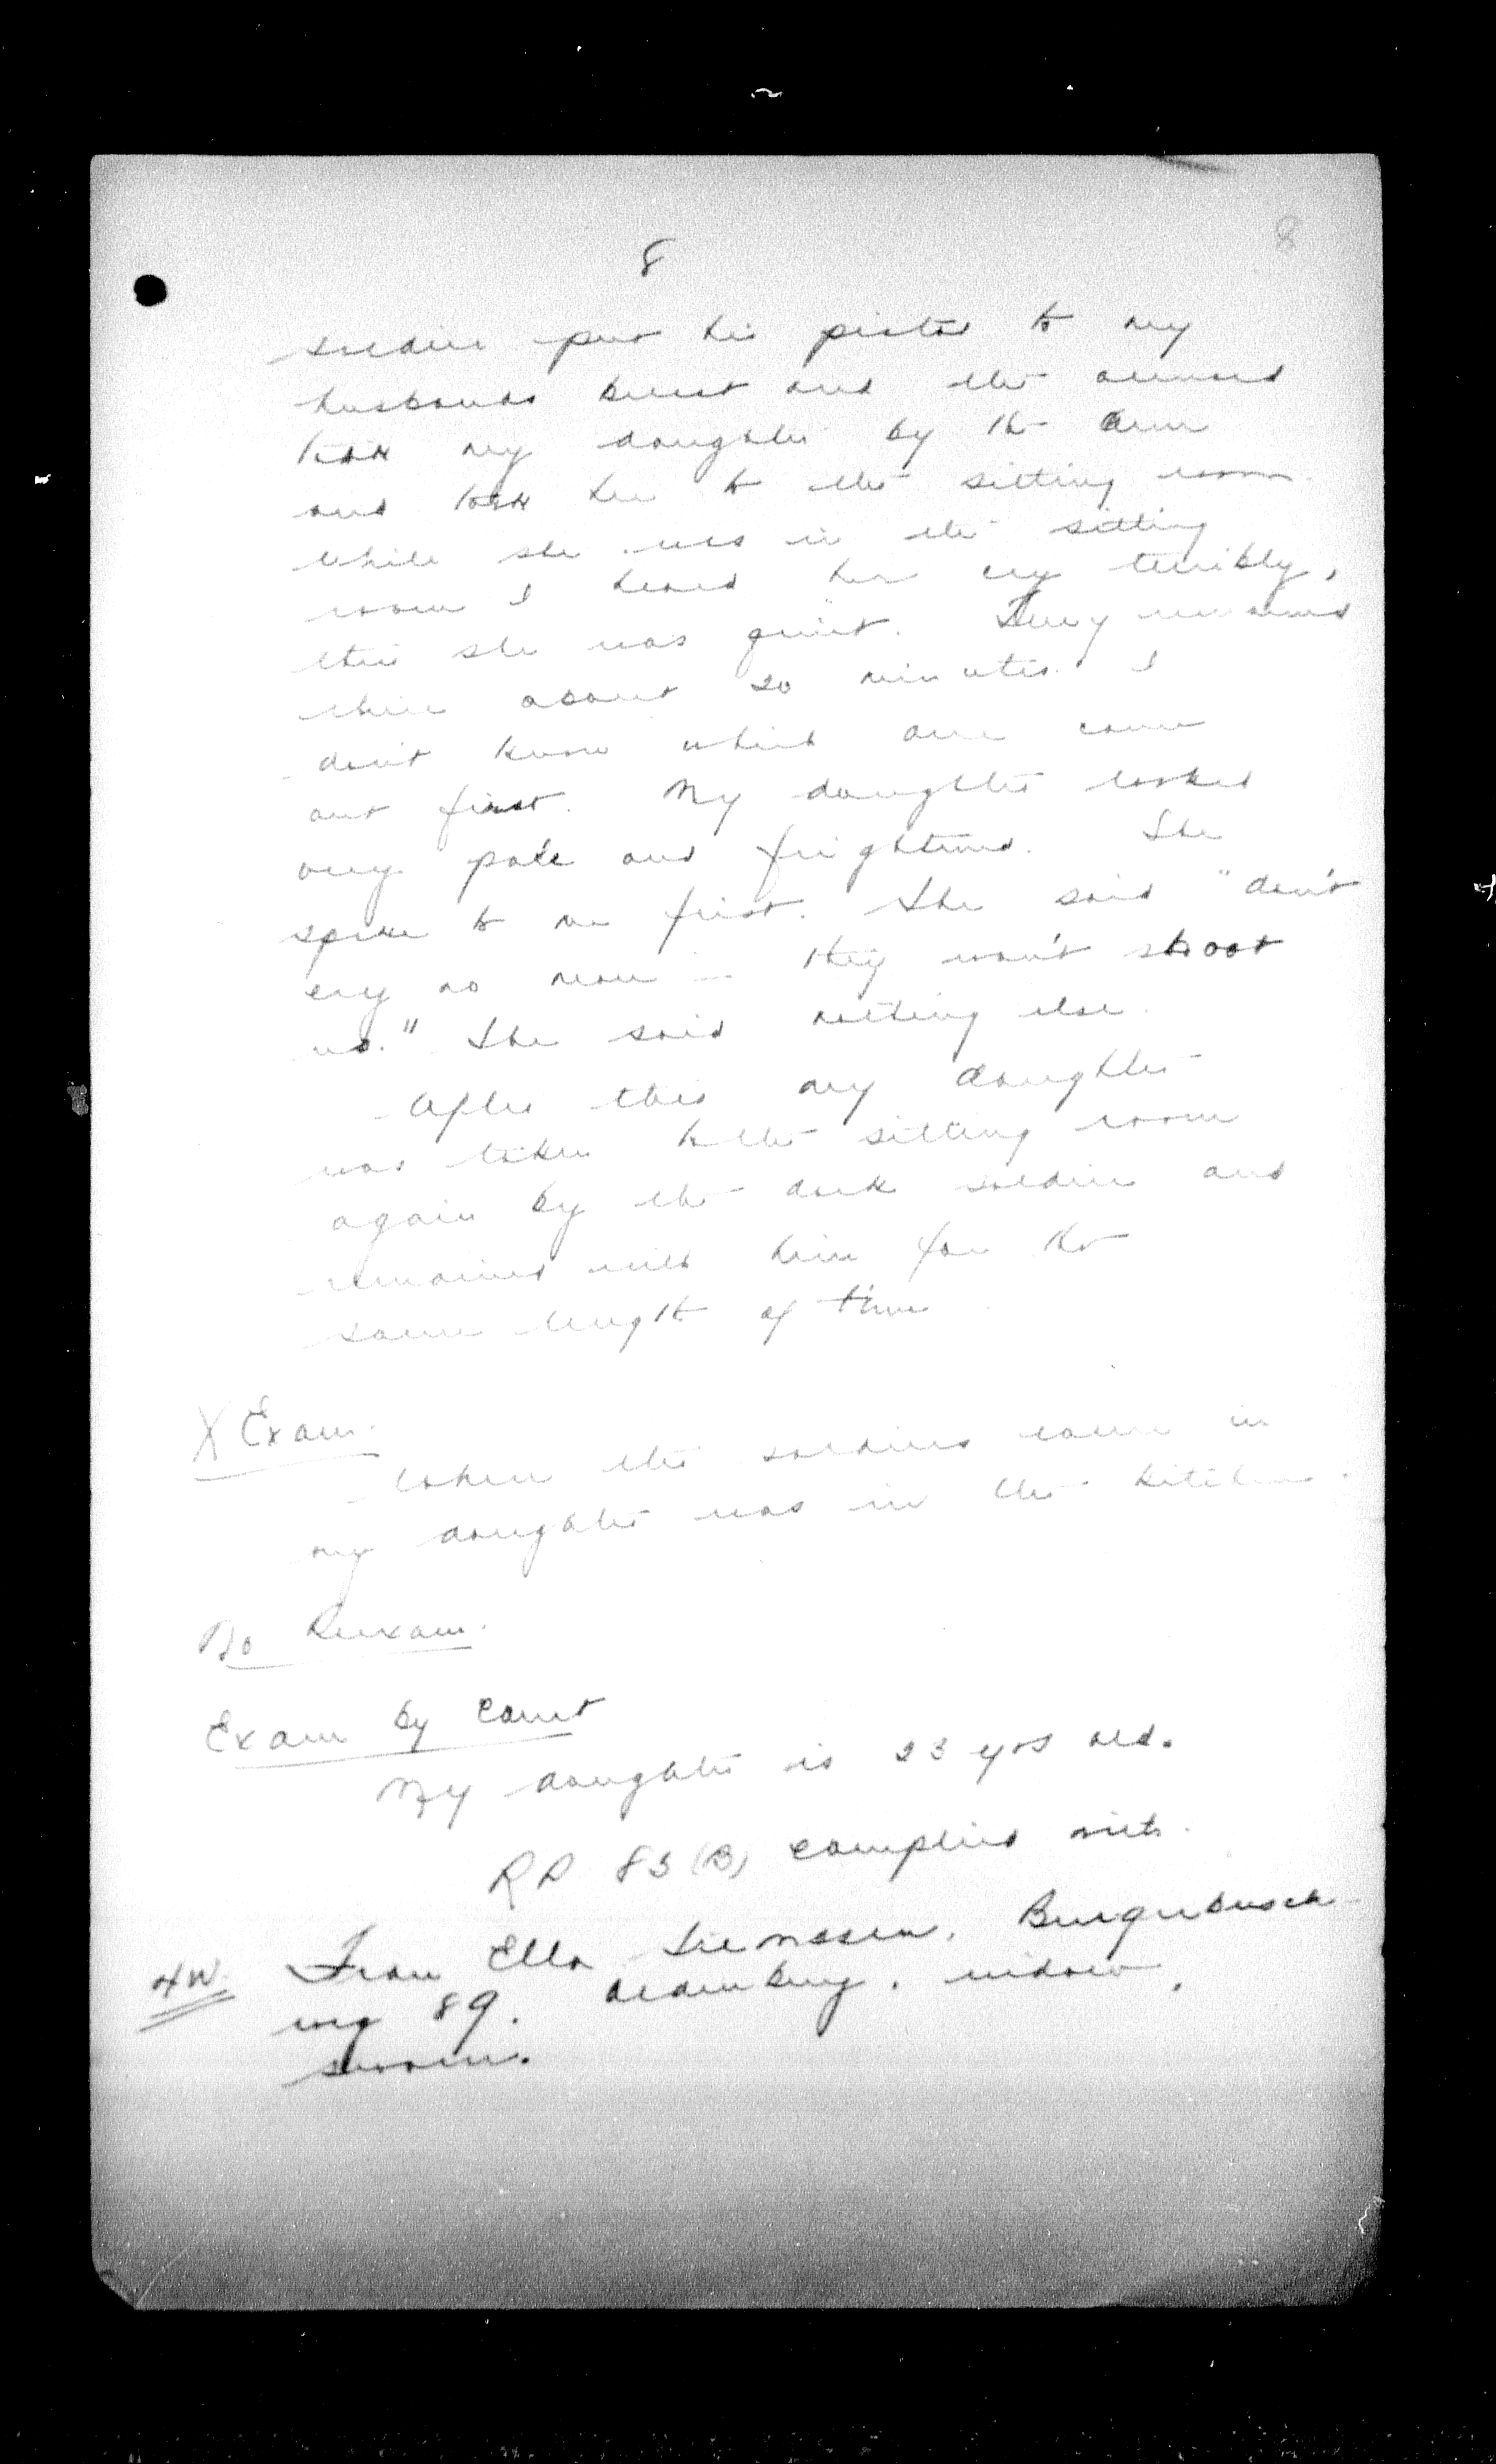 8
8
soldier put his pistol to my
husbands breast and the accused
took my daughter by the arm
and took her to the sitting room.
While she was in the sitting
room I heard her cry terribly,
then she was quiet. They remained
there about 20 minutes. I
don't know which one came
out first. My daughter looked
very pale and frightened. She
spoke to me first. She said "don't
cry no more — they won't shoot
us." She said nothing else.
After this my daughter
was taken to the sitting room
again by the dark soldier and
remained with him for the
same length of time.
X Exam.
When the soldiers came in
my daughter was in the kitchen.
No Reexam.
Exam by Court
My daughter is 23 yrs old.
RP 83 (B) complied with.
4 W. Frau Ella, Burgerbusch
weg 89. Oldenburg, widow,
sworn.